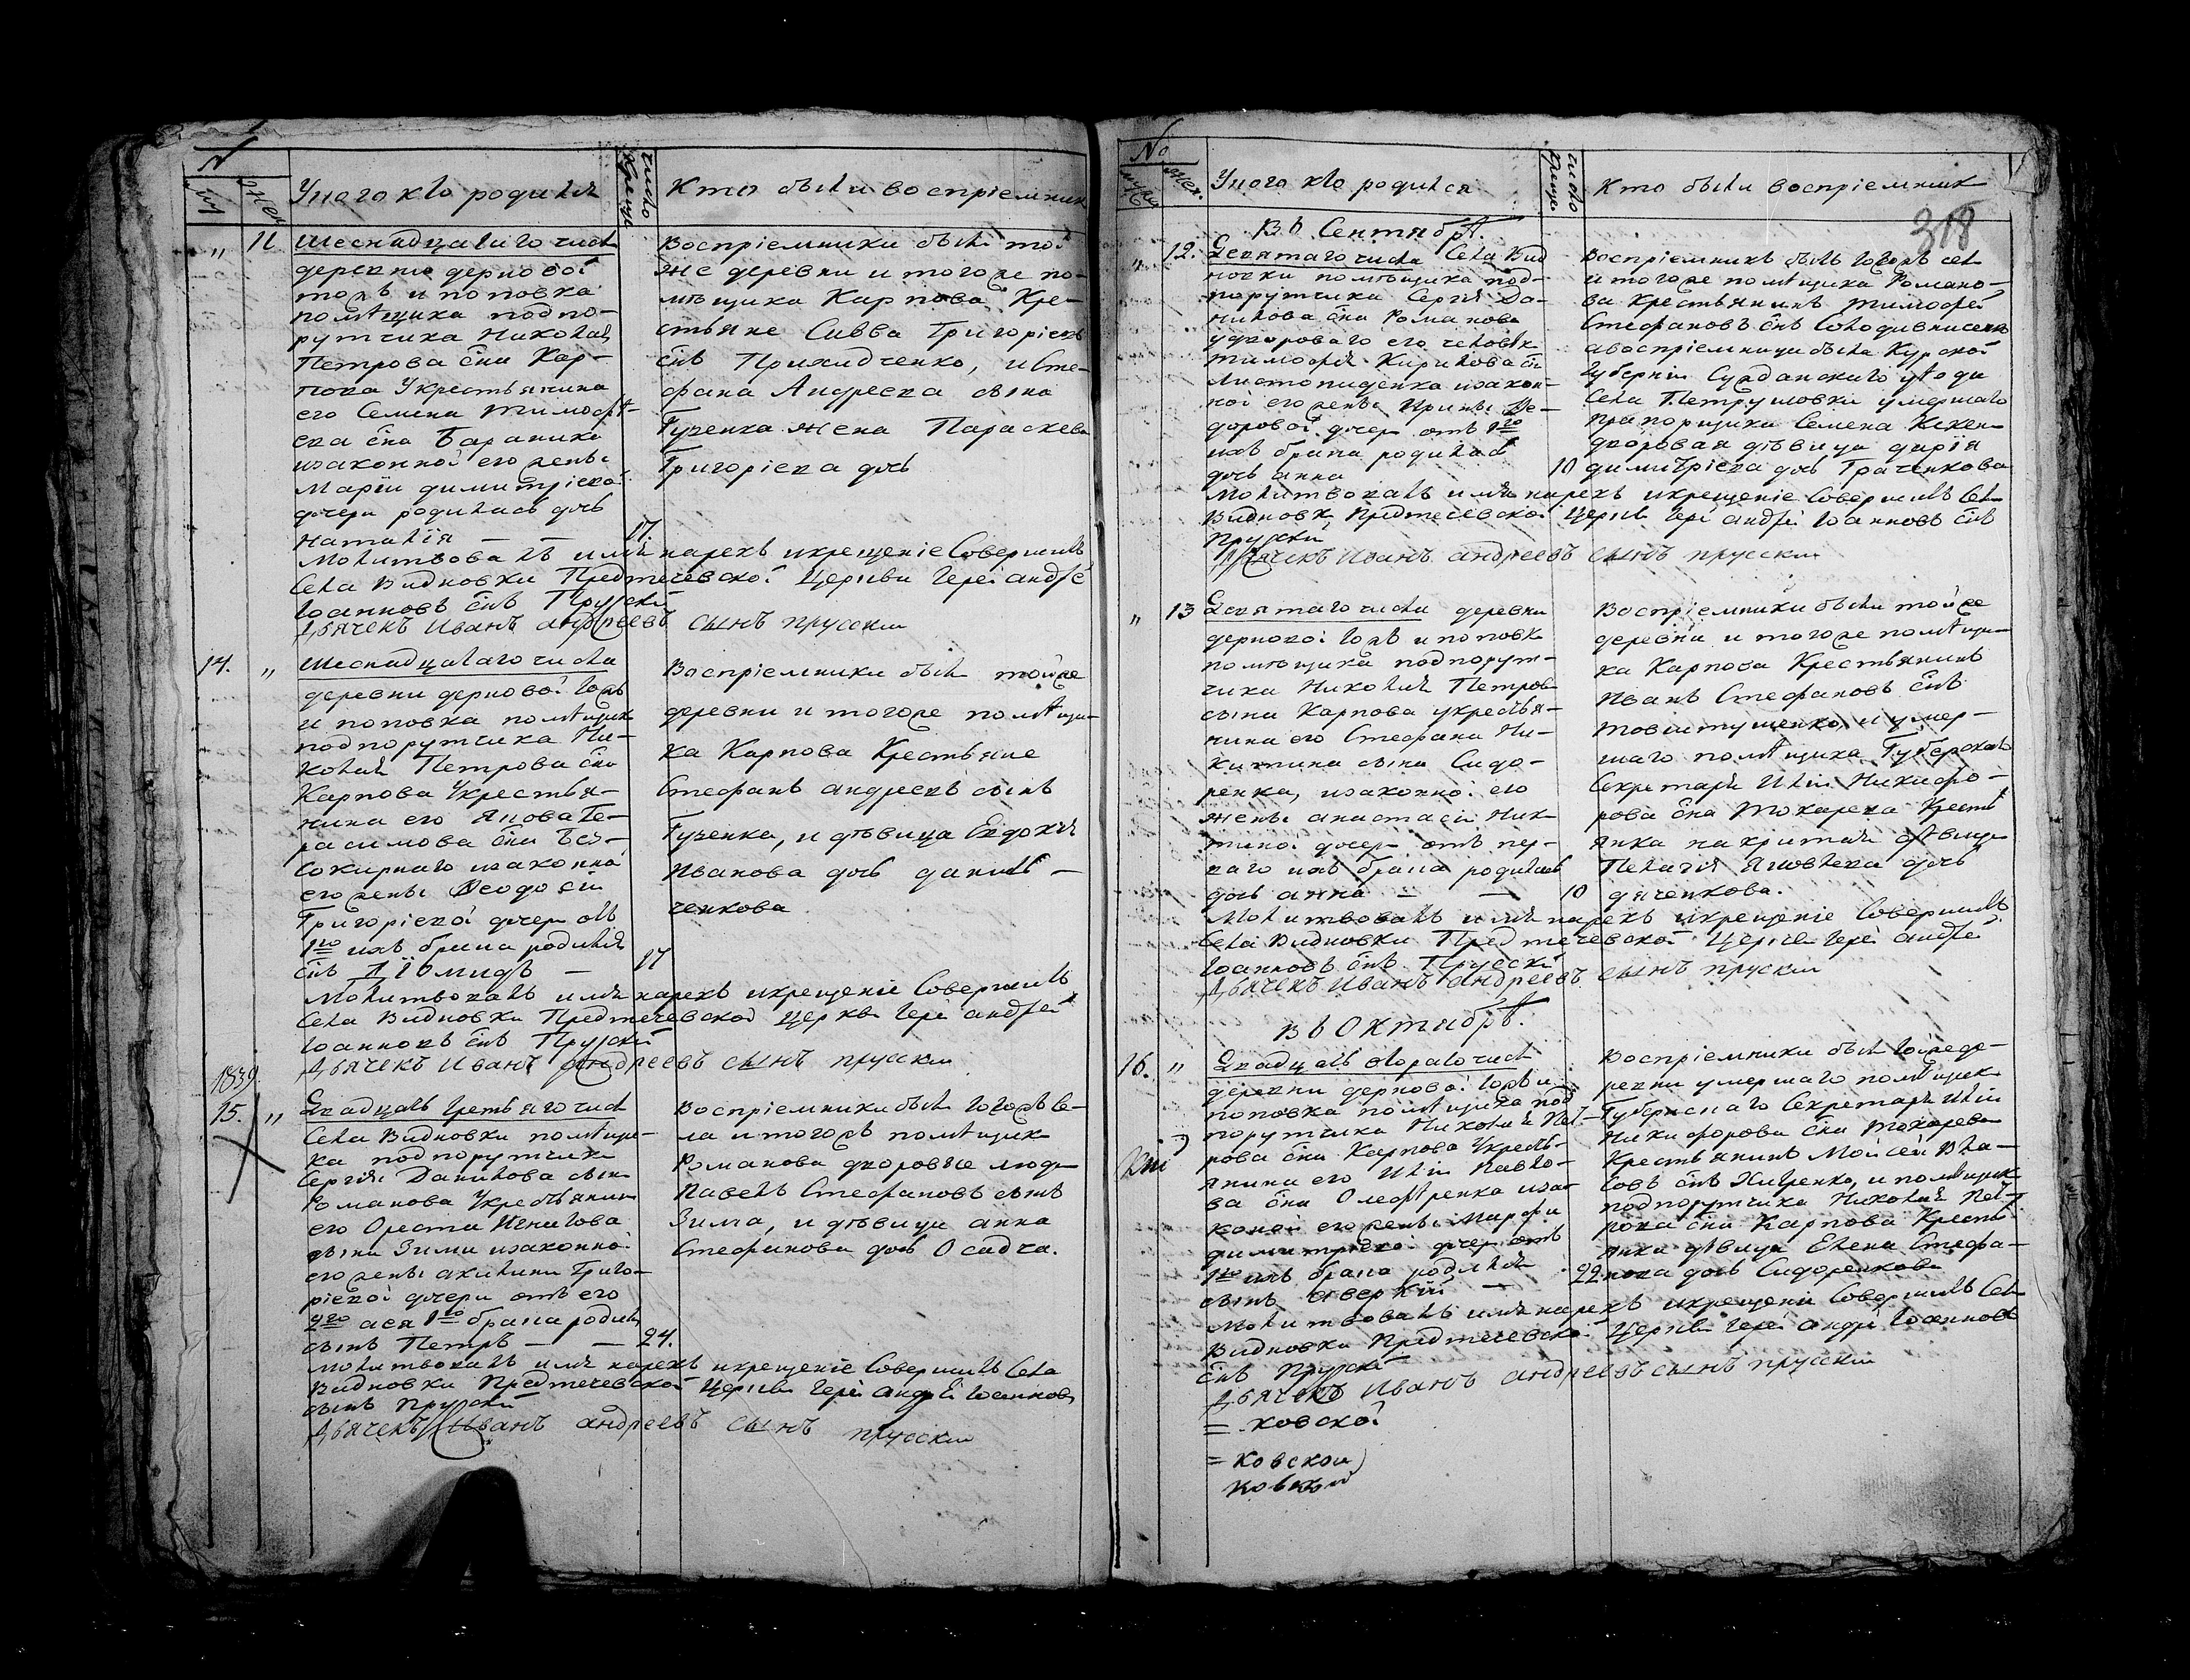 №
муж
жен
У кого кто родился
число крещен
Кто были восприемники
„ 11 Шеснадцатаго числа
деревни дерновой
тожъ и поповка
помѣщика подпо-
рутчика Николая
Петрова сна Кар-
пова Укрестьянина
его Семена Тимофѣ-
ева сна Бараника
изаконной его жены
Маріи димитріевой
дочери родилась дочь
Наталія — — 17.
Восприемники были той
же деревни и тогоже по-
мѣщика Карпова Кре-
стьяне Савва Григоріевъ
снъ Прихидченко, и Сте-
фана Андреева сына
Гученка жена Параскева
Григоріева дочь
Молитвовалъ имя нарекъ икрещеніе Совершилъ
Села Видновки Предтечевской Церкви Іерей андрей
Іоанновъ снъ Прускій
Дьячекъ Иванъ андреевъ сынъ прускии
14. „ Шеснадцатаго числа
деревни дерновой тожъ
и поповка помѣщика
подпорутчика Ни-
колая Петрова сна
Карпова Укрестья-
нина его Якова Ге-
расимова сна Без-
сокирнаго изаконной
его жены Ѳеодосіи
Григоріевой дочери отъ
1го ихъ брака родился
снъ Діомидъ — 17
Восприемники были тойже
деревни и тогоже помѣщи-
ка Карпова Крестьяне
Стефанъ андреевъ сынъ
Гученка, и дѣвица Евдокія
Иванова дочь данил-
ченкова
Молитвовалъ имя нарекъ икрещеніе Совершилъ
Села Видновки Предтечевской Церкви Іерей андрей
Іоанновъ снъ Прускій
Дьячекъ Иванъ андреевъ сынъ прускии
1839
15. „ Двадцать третьяго числа
Села Видновки помѣщи-
ка подпорутчика
Сергія Данилова сына
Романова Укрестьянина
его Ореста Игнатова
сына Зимы изаконной
его жены акилины Григо-
ріевой дочери отъ его
2го ася 1го брака родился
сынъ Петръ — — 24.
Восприемники были тогожъ се-
ла и тогожъ помѣщика
Романова дворовые люди
Павелъ Стефановъ сынъ
Зима, и дѣвица анна
Стефанова дочь Осадча.
молитвовалъ имя нарекъ икрещеніе Совершилъ Села
Видновки Предтечевской Церкви Іерей Андрей Іоанновъ
сынъ Прускій
Дьячекъ Иванъ андреевъ сынъ прусскии
№
муж
жен.
У кого кто родился
число крещен
Кто были восприемник
318
Въ Сентябрѣ.
„ 12. Девятаго числа Села Вид
новки помѣщика под-
порутчика Сергія Да-
нилова сна Романова
удвороваго его человѣка
тимофея Кирилова сна
Листопиденка изакон-
ной его жены Ирины Ѳе-
доровой дочери отъ 1го
ихъ брака родилась
дочь анна 10
Восприемникъ былъ тогожъ села
и тогоже помѣщика Романо-
ва крестьянинъ тимофей
Стефановъ снъ
авоспріемница была Курской
Губерніи Суджанскаго уѣзда
Села Петрушовки умершаго
прапорщика Семена
дворовая дѣвица дарія
димитріева дочь Граченкова
Молитвовалъ имя нарекъ икрещеніе Совершилъ Села
Видновки Предтечевской Церкви Іерей андрей Іоанновъ снъ
Прускій
Дьячекъ Иванъ андреевъ сынъ прусскии
„ 13 Девятаго числа деревни
дерновой тожъ и поповка
помѣщика подпорут-
чика Николая Петрова
сына Карпова укрестья-
нина его Стефана Ни-
китина сына Сидо-
ренка, изаконной его
жены анастасіи Ник-
тиной дочери отъ пер-
ваго ихъ брака родилась
дочь анна — — 10
Восприемники были тойже
деревни и тогоже помѣщи-
ка Карпова Крестьянинъ
Иванъ Стефановъ снъ
Товштушенко, и умер-
шаго помѣщика Губернскаго
Секретаря Иліи Никифо-
рова сна Токарева Кресть
янка дѣвица
Пелагія Яковлева дочь
дяченкова.
Молитвовалъ имя нарекъ икрещеніе Совершилъ
Села Видновки Предтечевской Церкви Іерей андрей
Іоанновъ снъ Прусскій
Дьячекъ Иванъ андреевъ сынъ прускии
Въ Октябрѣ.
16. „ Двадцать втораго числа
деревни дерновой тожъ и
поповка помѣщика под
порутчика Николая Пет-
рова сна Карпова Укресть-
янина его Иліи Павло-
ва сна Олефѣренка иза-
конной его жены Марфы
димитріевой дочери отъ
1го ихъ брака родился
сынъ аверкій — 22
Восприемники были тойже де-
ревни умершаго помѣщика
Губернскаго Секретаря Иліи
Никифорова сна Токарева
Крестьянинъ Моисей Вла-
совъ снъ Хиренко, и помѣщика
подпорутчика Николая Пет-
рова сна Карпова Кресть-
янка дѣвица Елена Стефа-
нова дочь Сидоренкова
Молитвовалъ имя нарекъ икрещеніе Совершилъ Села
Видновки Предтечевской Церкви Іерей Андрей Іоанновъ
снъ Прускій
Дьячекъ Иванъ андреевъ сынъ прусскии
= ковской
= ковской
ковской